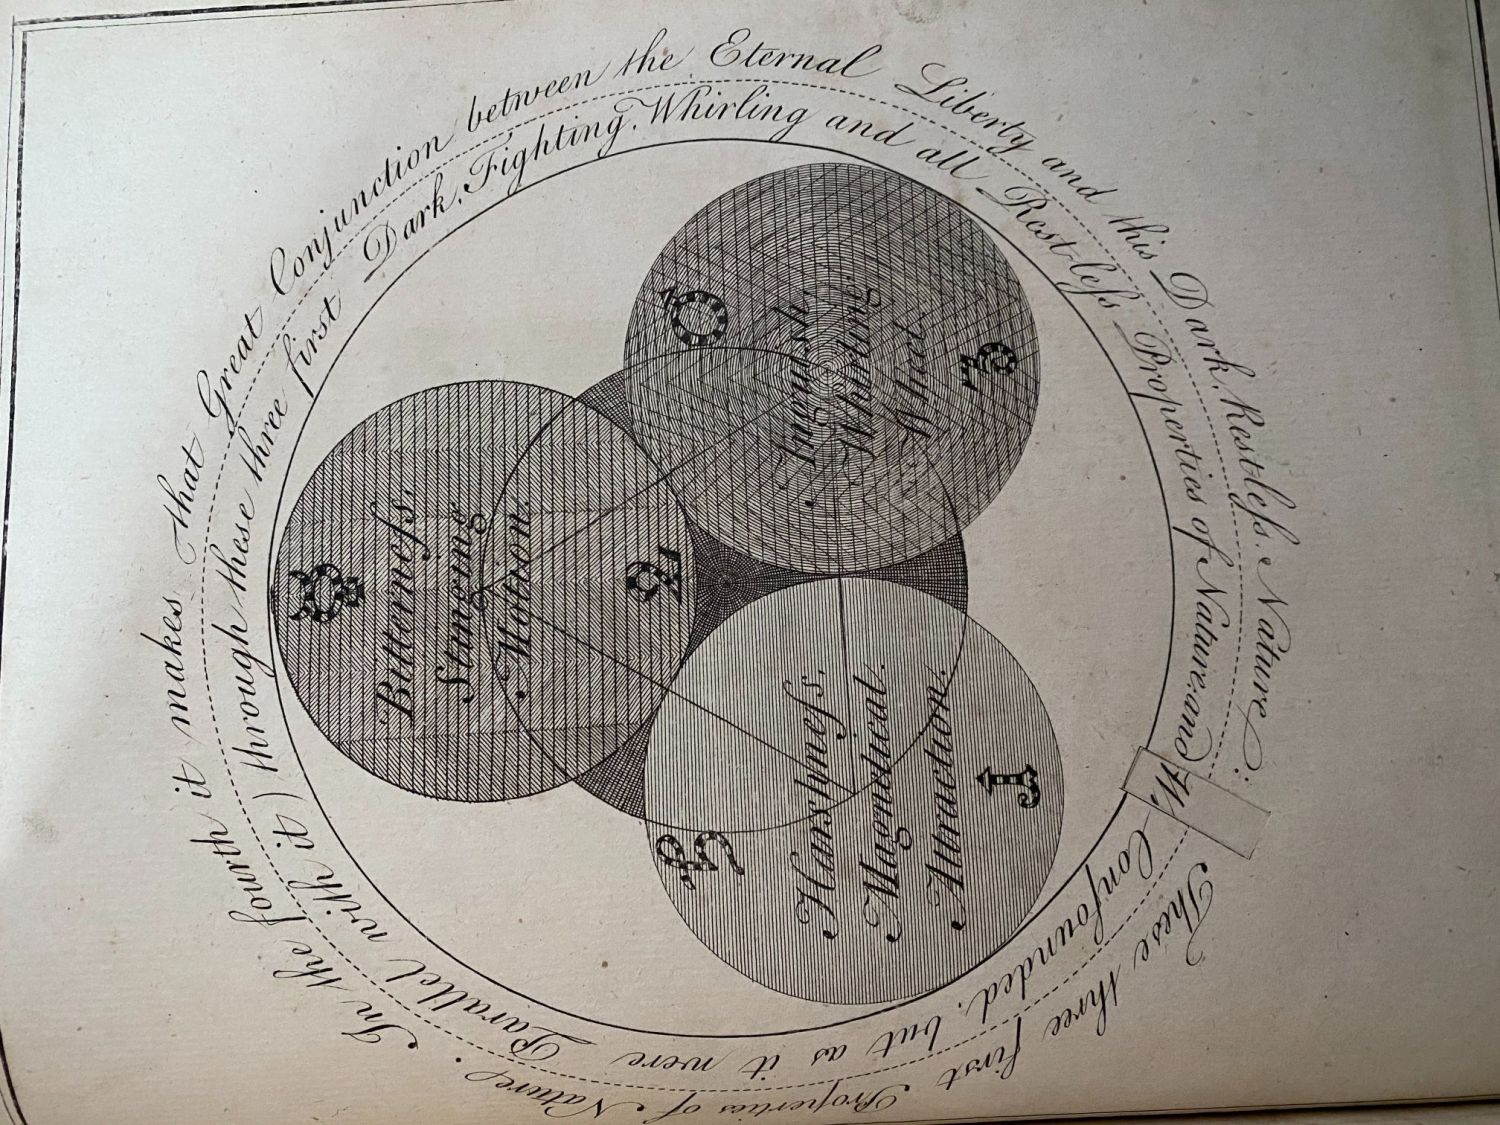 In the fourth it makes that Great Conjunction between the Eternal Liberty and this Dark, Rest-leſs Nature.
These three first Properties of Nature.
through these three first Dark, Fighting, Whirling and all Rest-leſs Properties of Nature and
Confounded, but as it were Parallel with it)
Anguish,
Whirling
Wheel.
Bitterneſs,
Stinging
Motion.
Harshneſs,
Magnetical
Attraction.